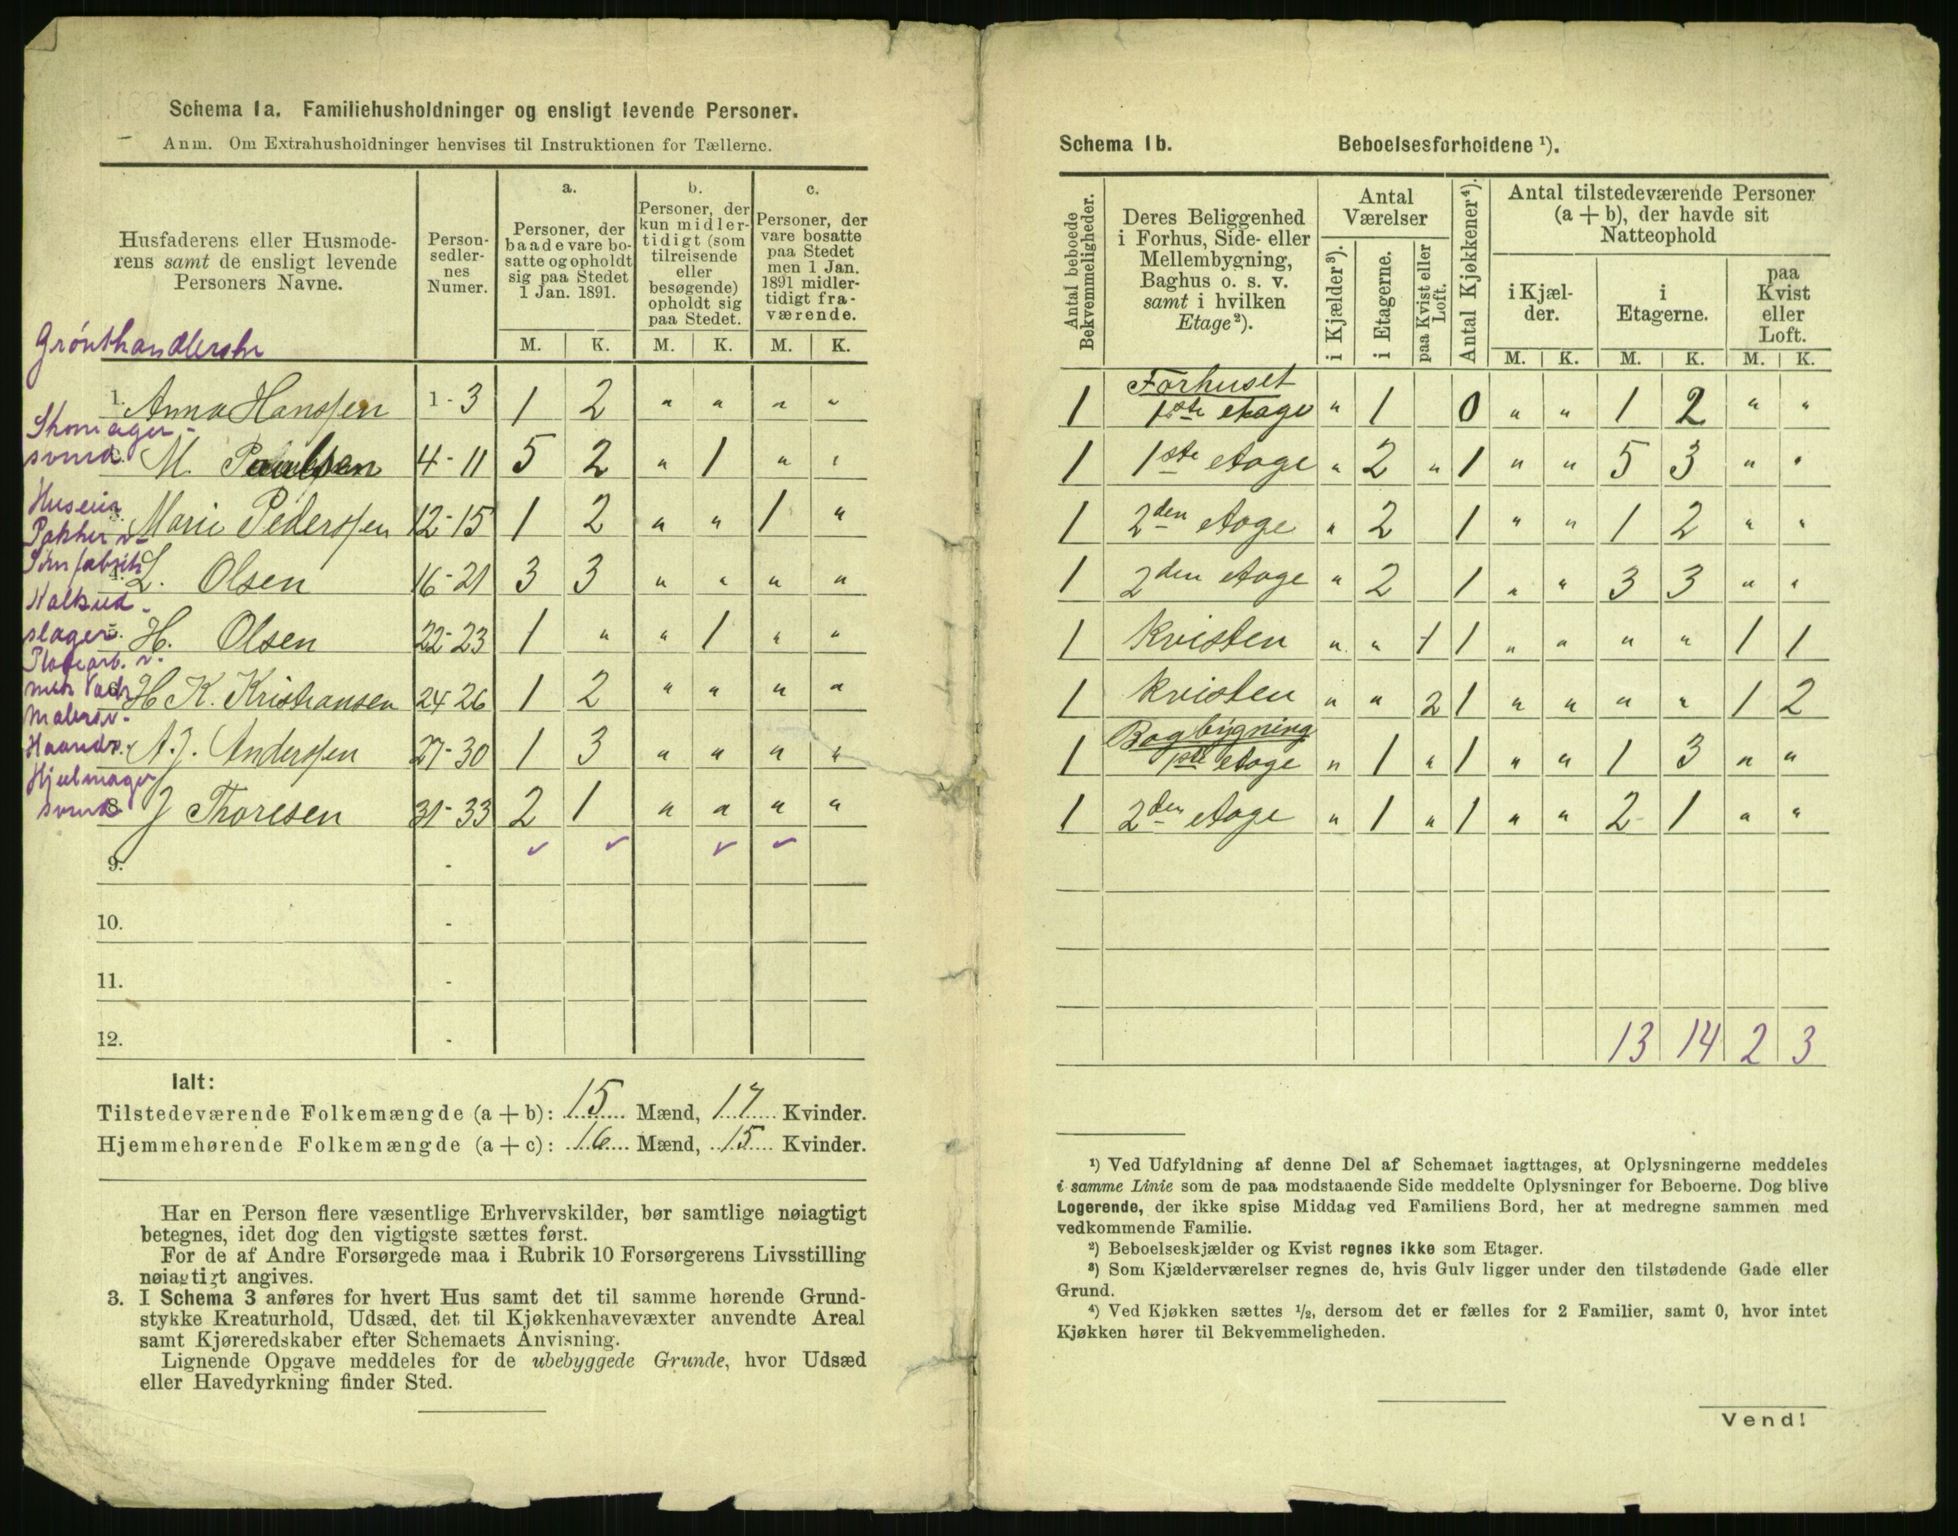 Schema 1a. Familiehusholdninger og ensligt levende Personer.
Anm. Om Extrahusholdninger henvises til Instruktionen for Tællerne.
Husfaderens eller Husmode-
rens samt de ensligt levende
Personers Navne.
Person-
sedler-
nes
Numer.
a.
Personer, der
baade vare bo-
satte og opholdt
sig paa Stedet
1 Jan. 1891.
b.
Personer, der
kun midler-
tidigt (som
tilreisende
eller
besøgende)
opholdt sig
paa Stedet.
c.
Personer, der
vare bosatte
paa Stedet
men 1 Jan.
1891 midler-
tidigt fra-
værende.
M. K. M. K. M. K.
Grønthandlerske
1. Anna Hanssen 1-3 1 2 " " " "
Skomager-
svend M. Paulsen 4-11 5 2 " 1 " "
Huseier
3. Marie Pederssen 12-15 1 2 " " 1 "
Pakker v.
4. L. Olsen 16-21 3 3 " " " "
slager 5. H. Olsen 22-23 1 " " 1 " "
H. K. Kristiansen 24-26 1 2 " " " "
Malersv.
A. J. Anderssen 27-30 1 3 " " " "
Hjulmager
svend 8 J Thoresen 31-33 2 1 " " " "
9. -
10. -
11. -
12. -
Ialt:
Tilstedeværende Folkemængde (a + b): 15 Mænd, 17 Kvinder.
Hjemmehørende Folkemængde (a + c): 16 Mænd, 15 Kvinder.
Har en Person flere væsentlige Erhvervskilder, bør samtlige nøiagtigt
betegnes, idet dog den vigtigste sættes først.
For de af Andre Forsørgede maa i Rubrik 10 Forsørgerens Livsstilling
nøiagtigt angives.
3. I Schema 3 anføres for hvert Hus samt det til samme hørende Grund-
stykke Kreaturhold, Udsæd, det til Kjøkkenhavevæxter anvendte Areal
samt Kjøreredskaber efter Schemaets Anvisning.
Lignende Opgave meddeles for de ubebyggede Grunde, hvor Udsæd
eller Havedyrkning finder Sted.
Schema 1b. Beboelsesforholdene ¹).
Antal beboede
Bekvemmeligheder.
Deres Beliggenhed
i Forhus, Side- eller
Mellembygning,
Baghus o. s. v.
samt i hvilken
Etage²).
Antal
Værelser
i Kjælder³).
i Etagerne.
paa Kvist eller
Loft.
Antal Kjøkkener⁴).
Antal tilstedeværende Personer
(a + b), der havde sit
Natteophold
i Kjæl-
der.
i
Etagerne.
paa
Kvist
eller
Loft.
M. K. M. K. M. K.
Forhuset
1 1ste etage " 1 0 " " 1 2 " "
1 1ste etage " 2 " 1 " " 5 3 " "
1 2den etage " 2 1 " " 1 2 " "
1 2den etage " 2 1 " " 3 3 " "
1 Kvisten " " 1 1 " " " " 1 1
1 Kvisten " " 2 1 " " " " 1 2
Bagbygning
1 1ste etage " 1 " 1 " " 1 3 " "
1 2den etage " 1 " 1 " " 2 1 " "
13 14 2 3
¹) Ved Udfyldning af denne Del af Schemaet iagttages, at Oplysningerne meddeles
i samme Linie som de paa modstaaende Side meddelte Oplysninger for Beboerne. Dog blive
Logerende, der ikke spise Middag ved Familiens Bord, her at medregne sammen med
vedkommende Familie.
²) Beboelseskjælder og Kvist regnes ikke som Etager.
³) Som Kjælderværelser regnes de, hvis Gulv ligger under den tilstødende Gade eller
Grund.
⁴) Ved Kjøkken sættes ½, dersom det er fælles for 2 Familier, samt 0, hvor intet
Kjøkken hører til Bekvemmeligheden.
Vend!